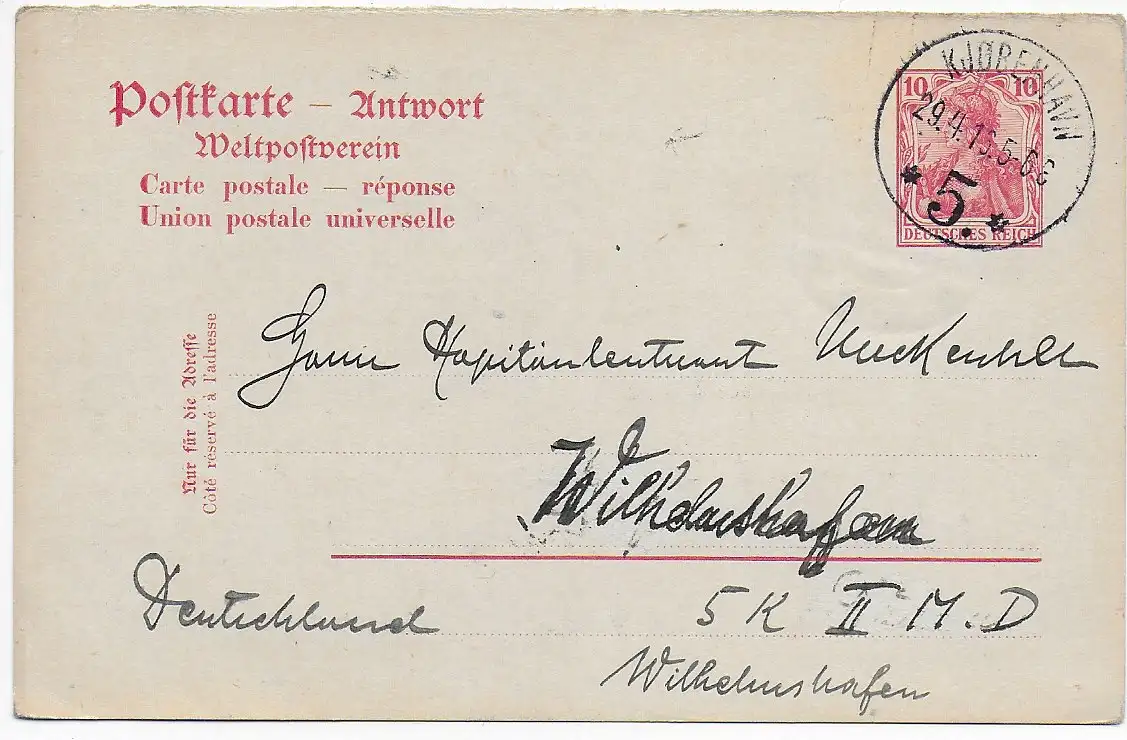 Postkarte – Antwort
Weltpostverein
Carte postale — réponse
Union postale universelle
KJØBENHAVN
29.4.16.5-6E
* 5. *
10 10
DEUTSCHES REICH
Nur für die Adresse
Côté réservé à l'adresse
Herrn Kapitänleutnant
Wilhelmshafen
Deutschland
5 K II M. D
Wilhelmshafen